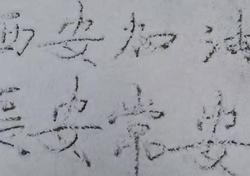 西安加油
长安常安